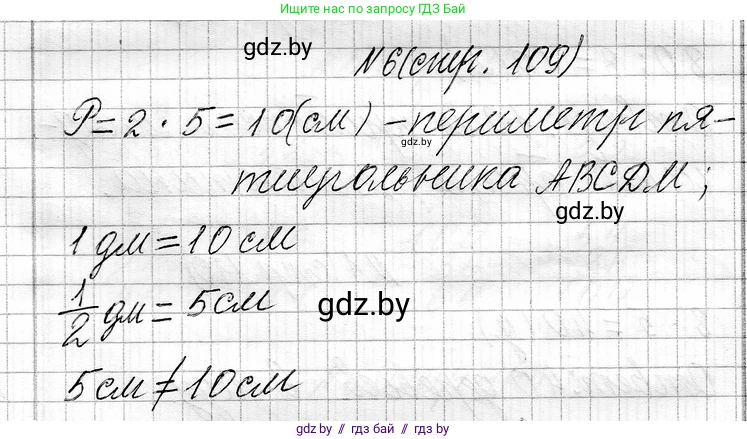 Ищите нас по запросу ГДЗ Бай
gdz.by
N6(стр. 109)
P=2·5=10(см) - периметр пя-
gdz.by
тиугольника ABCDM;
gdz.by
1 дм=10 см
1/2 дм= 5см
gdz.by
5см≠10см
gdz.by // гдз бай // gdz.by